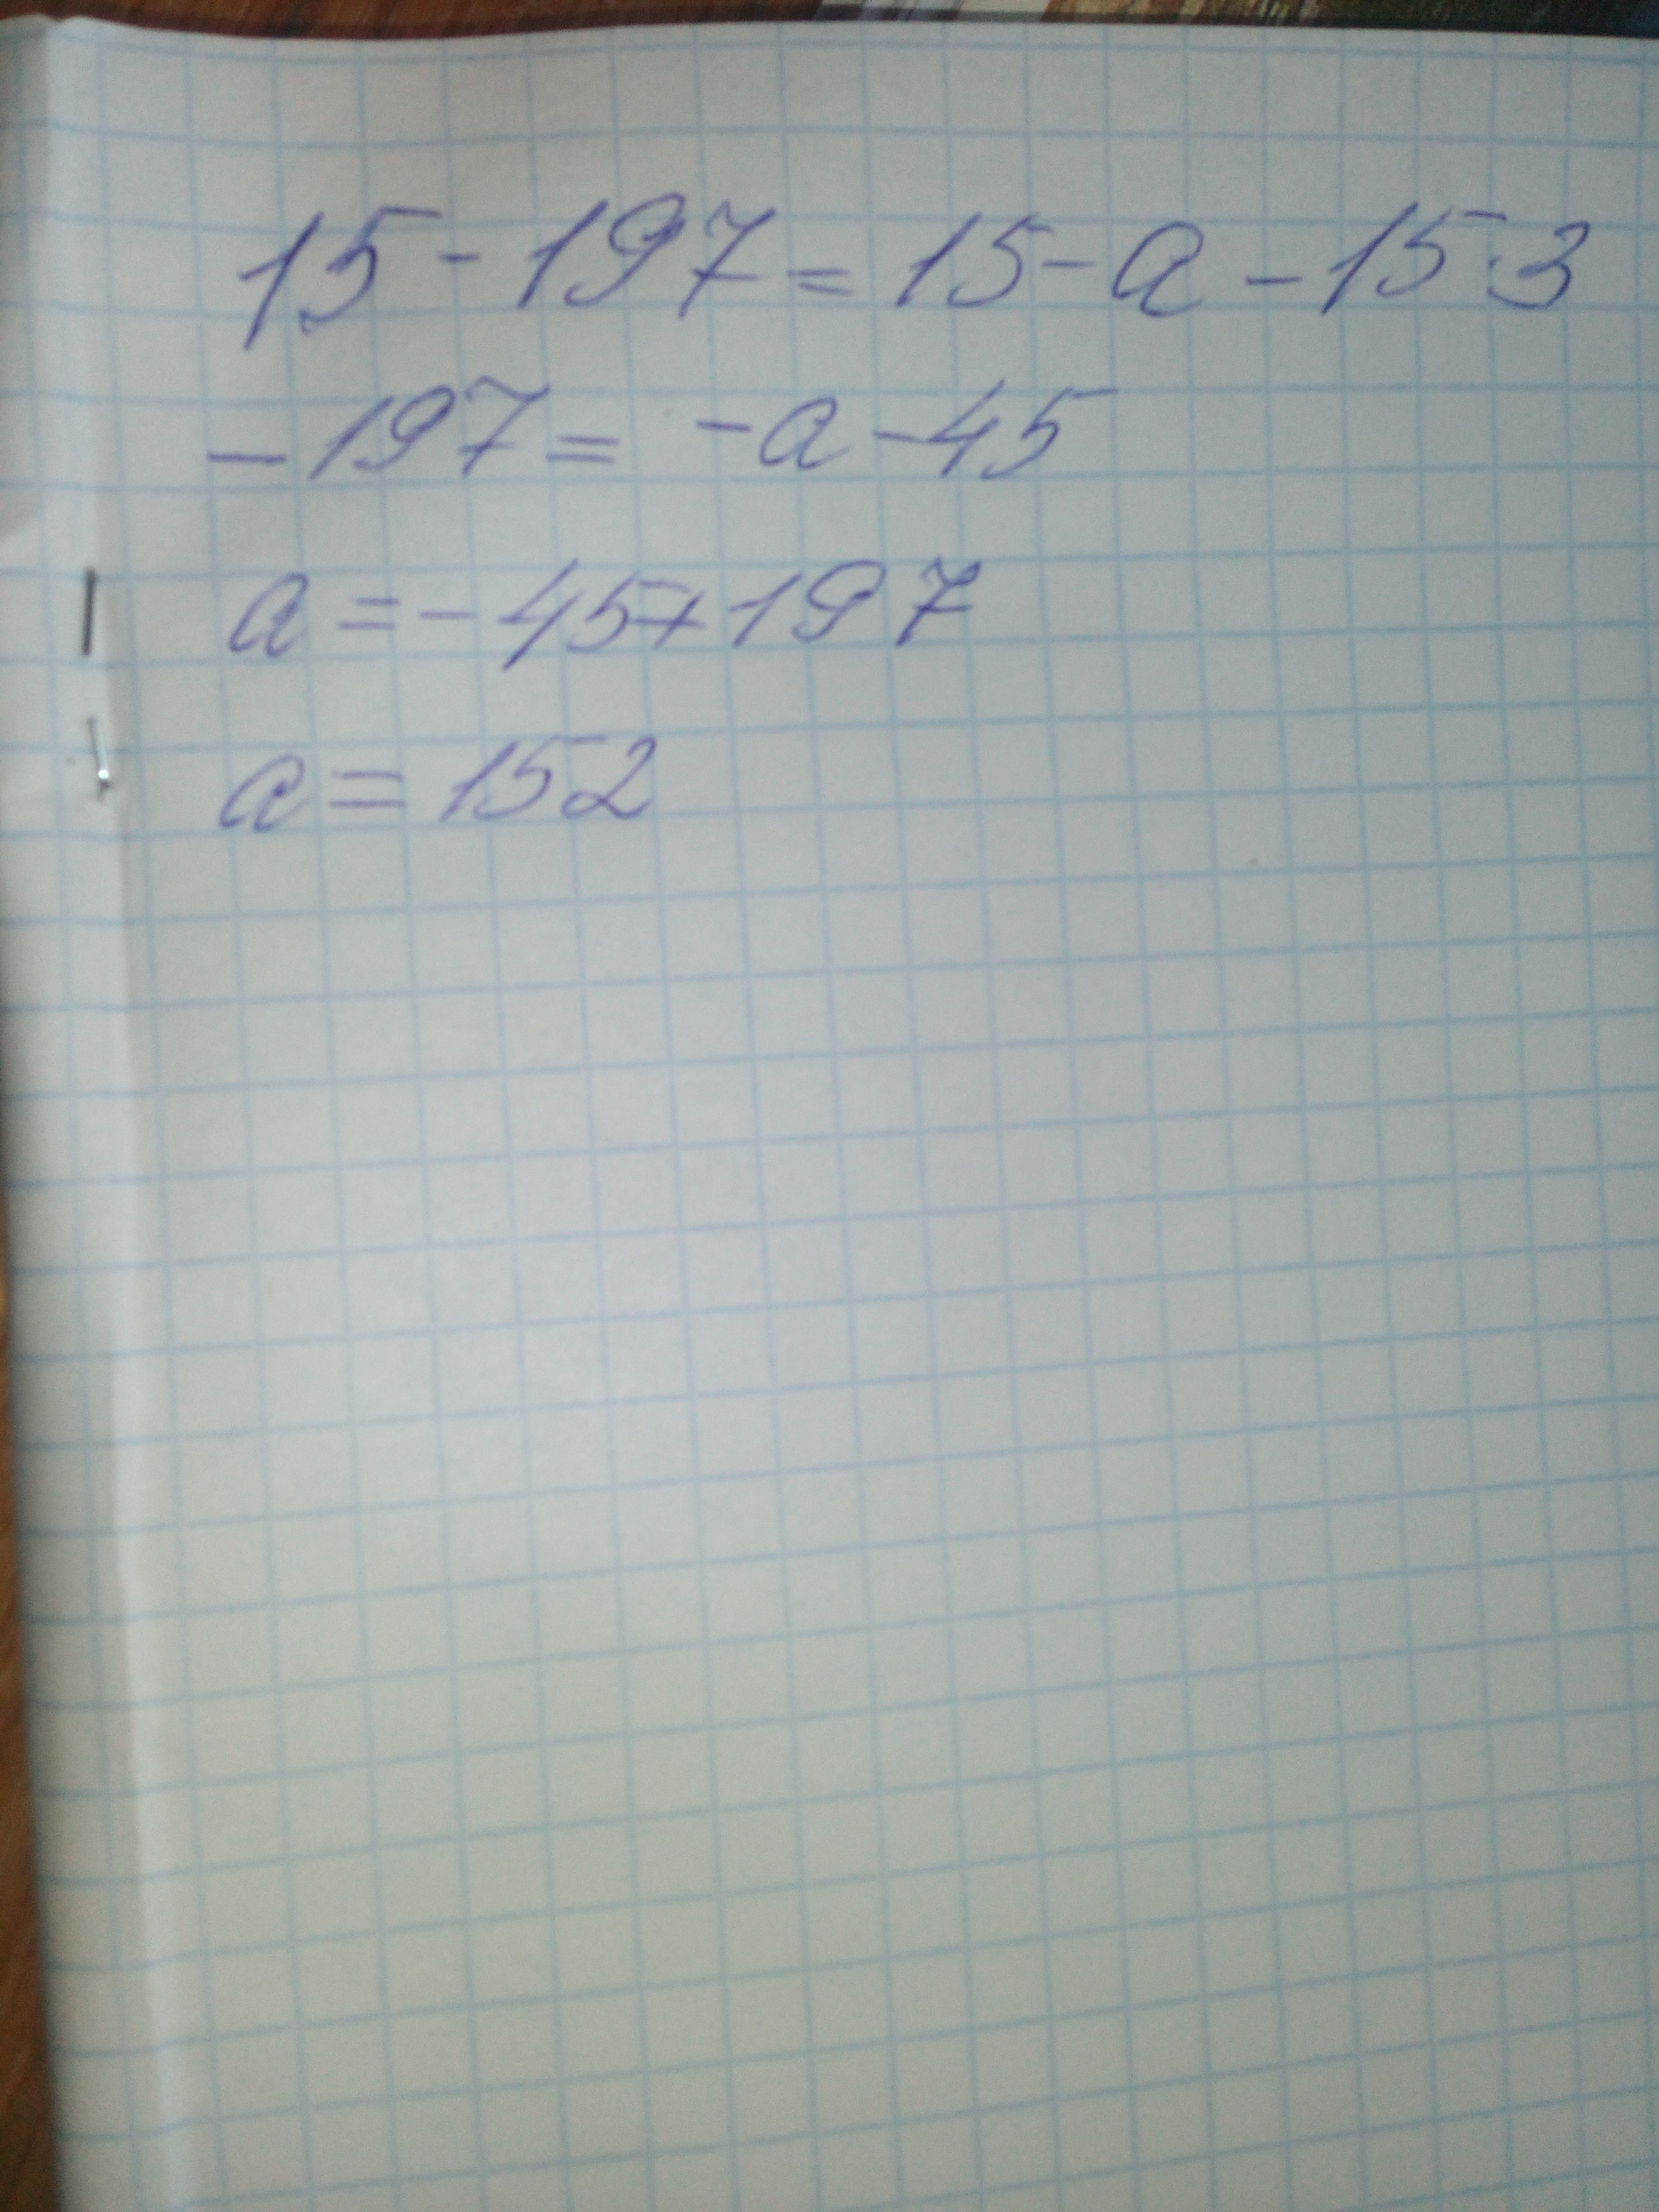 15-197=15-a-15·3
-197=-a-45
a=-45+197
a=152